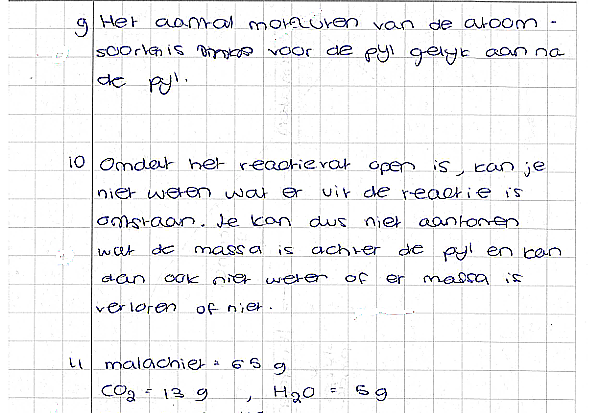 9 Het aantal moleculen van de atoom-
soorten is voor de pijl gelijk aan na
de pijl.
10 Omdat het reactievat open is, kan je
niet weten wat er uit de reactie is
ontstaan. Je kan dus niet aantonen
wat de massa is achter de pijl en kan
dan ook niet weten of er massa is
verloren of niet.
11 malachiet = 65 g
CO2 = 13 g , H2O = 5 g